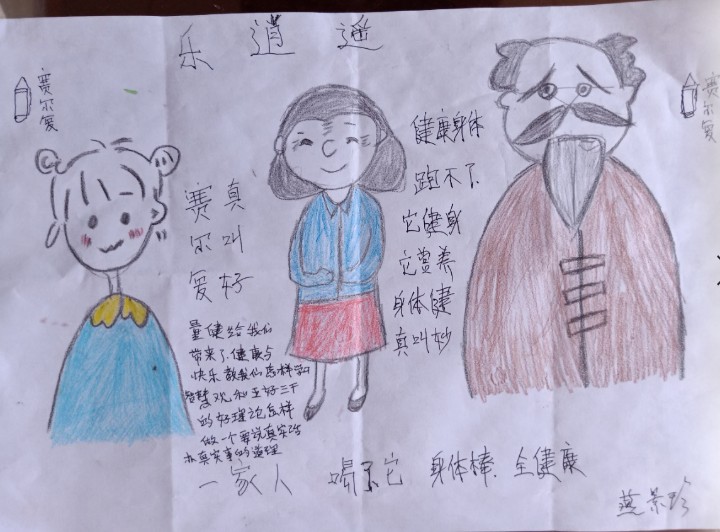 乐逍遥
赛尔爱
赛尔爱
真叫好
健康身体
跑不了
它健身
它营养
身体健
真叫妙
赛尔爱
量健给我们
带来了健康与
快乐教我们怎样学习
智慧观和三好三干
的好理论怎样
做一个要说真实话
办真实事的道理
一家人 喝了它 身体棒.全健康
燕景珍